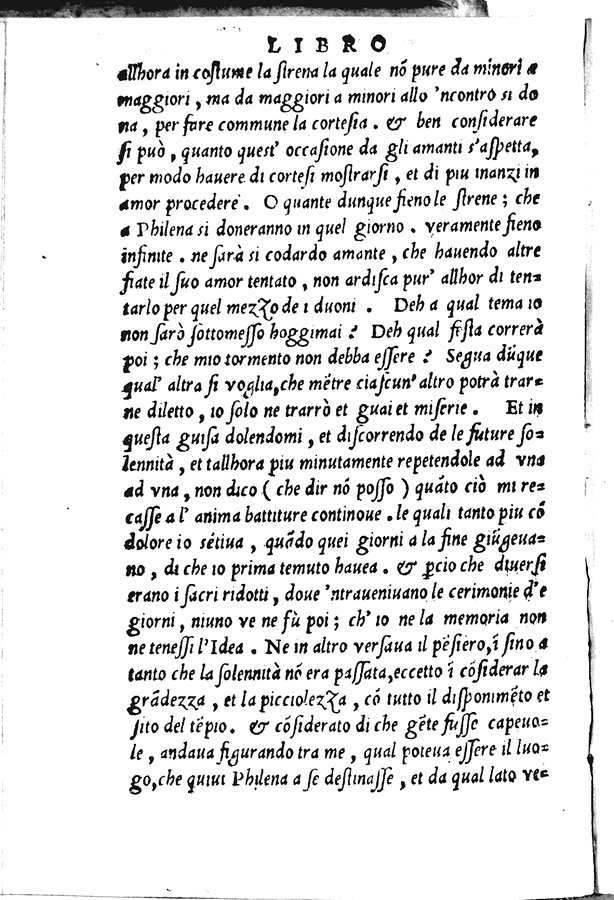 LIBRO
allhora in costume la strena la quale nõ pure da minori a
maggiori, ma da maggiori a minori allo 'ncontro si do
na, per fare commune la cortesia. & ben considerare
si può, quanto quest' occasione da gli amanti s'aspetta,
per modo hauere di cortesi mostrarsi, et di piu inanzi in
amor procedere. O quante dunque fieno le strene; che
a Philena si doneranno in quel giorno. veramente fieno
infinite. ne sarà si codardo amante, che hauendo altre
fiate il suo amor tentato, non ardisca pur' allhor di ten=
tarlo per quel mezzo de i duoni. Deh a qual tema io
non sarò sottomesso hoggimai? Deh qual festa correrà
poi; che mio tormento non debba essere? Segua dũque
qual' altra si voglia, che mẽtre ciascun' altro potrà trar=
ne diletto, io solo ne trarrò et guai et miserie. Et in
questa guisa dolendomi, et discorrendo de le future so=
lennità, et tallhora piu minutamente repetendole ad vna
ad vna, non dico (che dir nõ posso) quãto ciò mi re=
casse a l' anima battiture continoue. le quali tanto piu cõ
dolore io sẽtiua, quãdo quei giorni a la fine giũgeua=
no, di che io prima temuto hauea. & ꝑcio che diuersi
erano i sacri ridotti, doue 'ntraueniuano le cerimonie d'e
giorni, niuno ve ne fù poi; ch' io ne la memoria non
ne tenessi l'Idea. Ne in altro versaua il pẽsiero, ĩ sino a
tanto che la solennità nõ era passata, eccetto ĩ cõsiderar la
grãdezza, et la picciolezza, cõ tutto il disponimẽto et
sito del tẽpio. & cõsiderato di che gẽte fusse capeuo=
le, andaua figurando tra me, qual poteua essere il luo=
go, che quiui Philena a se destinasse, et da qual lato ve=